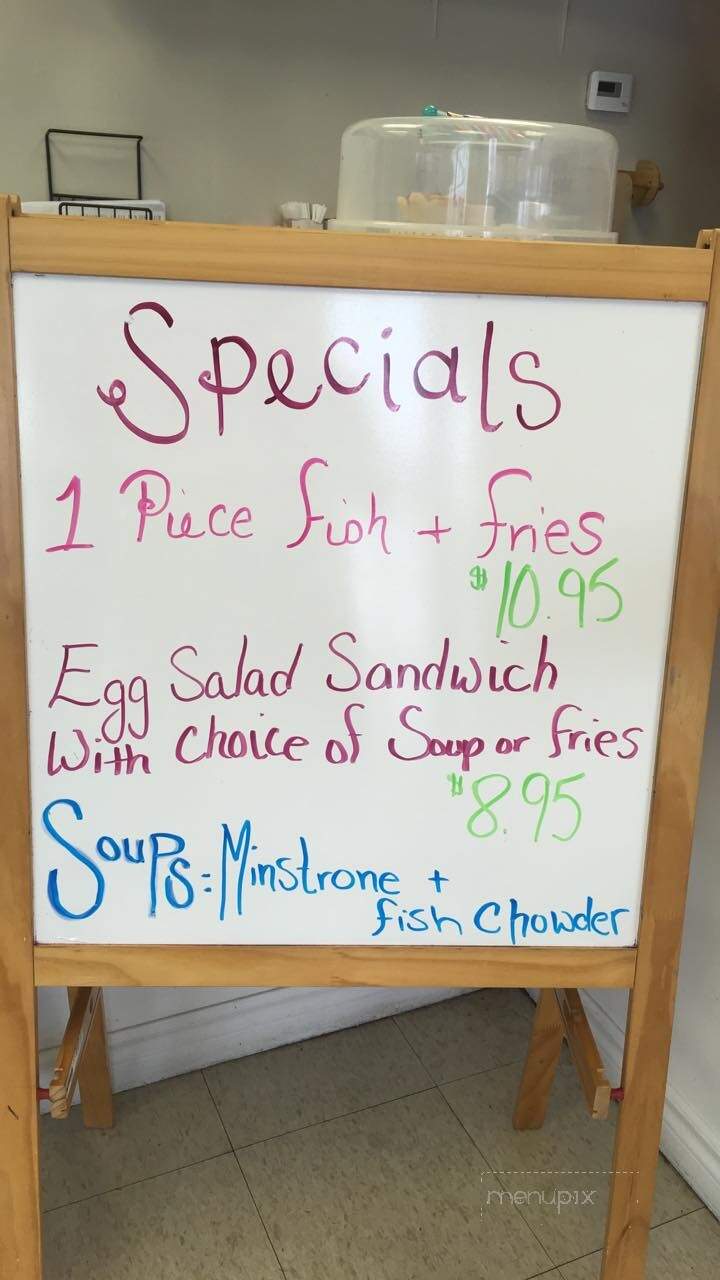 Specials
1 Piece fish + fries
$10.95
Egg Salad Sandwich
With choice of Soup or fries
$8.95
Soups: Minstrone +
fish Chowder
menupix